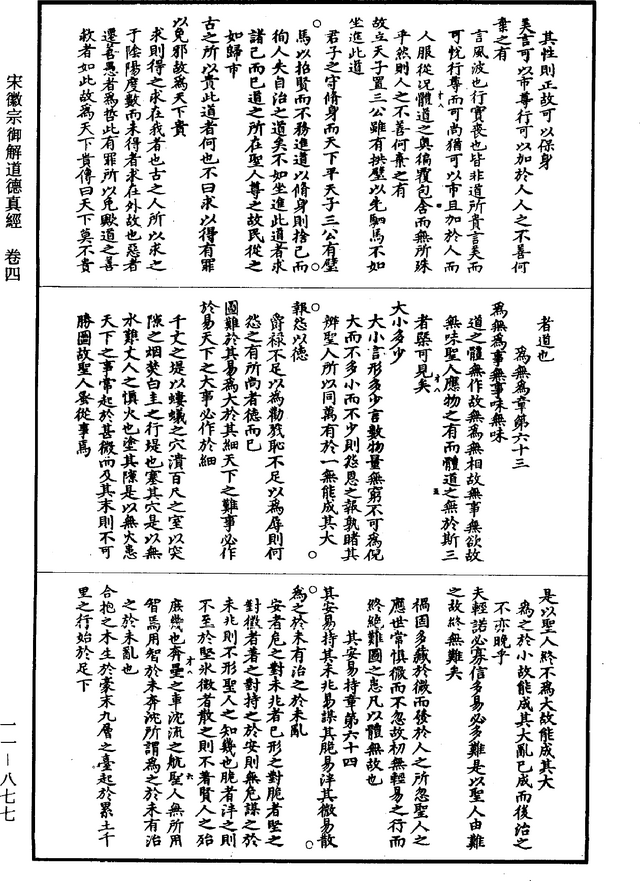 宋徽宗御解道德真經 卷四
一一—八七七
其性則正故可以保身
美言可以市尊行可以加於人人之不善何
棄之有
言風波也行實喪也皆非道所貴言美而
可悅行尊而可尚猶可以市且加於人而
人服從況體道之奧徧覆包含而無所殊
乎然則人之不善何棄之有
故立天子置三公雖有拱璧以先駟馬不如
坐進此道
君子之守脩身而天下平天子三公有璧
馬以招賢而不務進道以脩身則捨己而
徇人失自治之道矣不如坐進此道者求
諸己而已道之所在聖人尊之故民從之
如歸市
古之所以貴此道者何也不曰求以得有罪
以免邪故為天下貴
求則得之求在我者也古之人所以求之
于陰陽度數而未得者求在外故也惡者
遷善愚者為哲此有罪所以免歟道之善
救者如此故為天下貴傳曰天下莫不貴
者道也
為無為章第六十三
為無為事無事味無味
道之體無作故無為無相故無事無欲故
無味聖人應物之有而體道之無於斯三
者槩可見矣
大小多少
大小言形多少言數物量無窮不可為倪
大而不多小而不少則怨恩之報孰睹其
辨聖人所以同萬有於一無能成其大
報怨以德
爵祿不足以為勸戮恥不足以為辱則何
怨之有所尚者德而已
圖難於其易為大於其細天下之難事必作
於易天下之大事必作於細
千丈之堤以螻蟻之穴潰百尺之室以突
隙之烟焚白圭之行堤也塞其穴是以無
水難丈人之慎火也塗其隙是以無火患
天下之事常起於甚微而及其末則不可
勝圖故聖人蚤從事焉
是以聖人終不為大故能成其大
為之於小故能成其大亂已成而後治之
不亦晚乎
夫輕諾必寡信多易必多難是以聖人由難
之故終無難矣
禍固多藏於微而發於人之所忽聖人之
應世常慎微而不忽故初無輕易之行而
終絕難圖之患凡以體無故也
其安易持章第六十四
其安易持其未兆易謀其脆易泮其微易散
為之於未有治之於未亂
安者危之對未兆者已形之對脆者堅之
對微者著之對持之於安則無危謀之於
未兆則不形聖人之知幾也脆者泮之則
不至於堅氷微者散之則不著賢人之殆
庶幾也奔壘之車沈流之航聖人無所用
智焉用智於未奔沈所謂為之於未有治
之於未亂也
合抱之木生於豪末九層之臺起於累土千
里之行始於足下